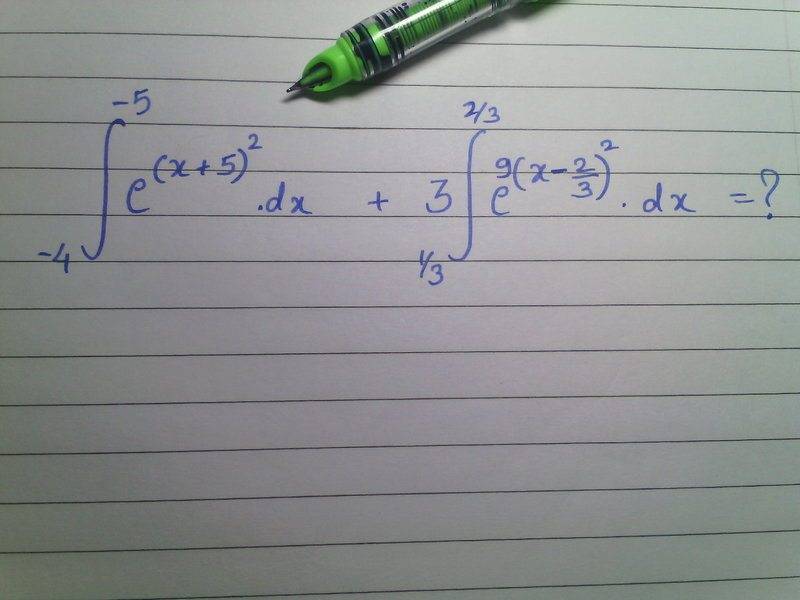 ∫_{-4}^{-5} e^{(x+5)^2} .dx + 3 ∫_{1/3}^{2/3} e^{9(x-\frac{2}{3})^2} . dx = ?